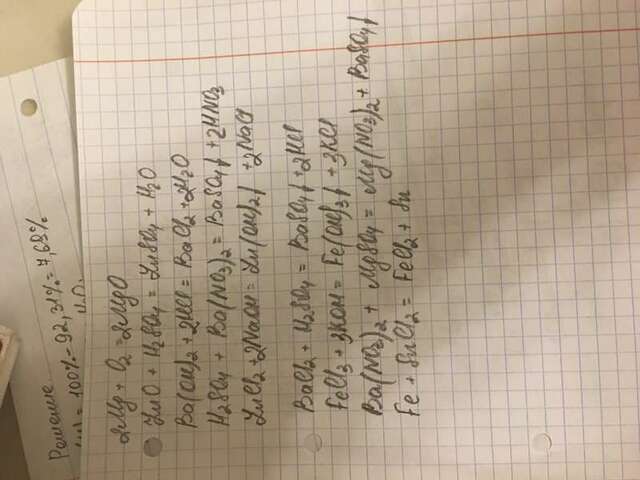 Решение
= 100% - 92,31% = 7,69%
2Mg + O2 = 2MgO
ZnO + H2SO4 = ZnSO4 + H2O
Ba(OH)2 + 2HCl = BaCl2 + 2H2O
H2SO4 + Ba(NO3)2 = BaSO4↓ + 2HNO3
ZnCl2 + 2NaOH = Zn(OH)2↓ + 2NaCl
BaCl2 + H2SO4 = BaSO4↓ + 2HCl
FeCl3 + 3KOH = Fe(OH)3↓ + 3KCl
Ba(NO3)2 + MgSO4 = Mg(NO3)2 + BaSO4↓
Fe + SnCl2 = FeCl2 + Sn